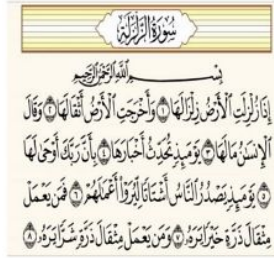 سُورَةُ الزَّلْزَلَةِ
بِسْمِ اللَّهِ الرَّحْمَٰنِ الرَّحِيمِ
إِذَا زُلْزِلَتِ الْأَرْضُ زِلْزَالَهَا ۝١ وَأَخْرَجَتِ الْأَرْضُ أَثْقَالَهَا ۝٢ وَقَالَ
الْإِنسَٰنُ مَا لَهَا ۝٣ يَوْمَئِذٍ تُحَدِّثُ أَخْبَارَهَا ۝٤ بِأَنَّ رَبَّكَ أَوْحَىٰ لَهَا
۝٥ يَوْمَئِذٍ يَصْدُرُ النَّاسُ أَشْتَاتًا لِّيُرَوْا أَعْمَٰلَهُمْ ۝٦ فَمَن يَعْمَلْ
مِثْقَالَ ذَرَّةٍ خَيْرًا يَرَهُۥ ۝٧ وَمَن يَعْمَلْ مِثْقَالَ ذَرَّةٍ شَرًّا يَرَهُۥ ۝٨